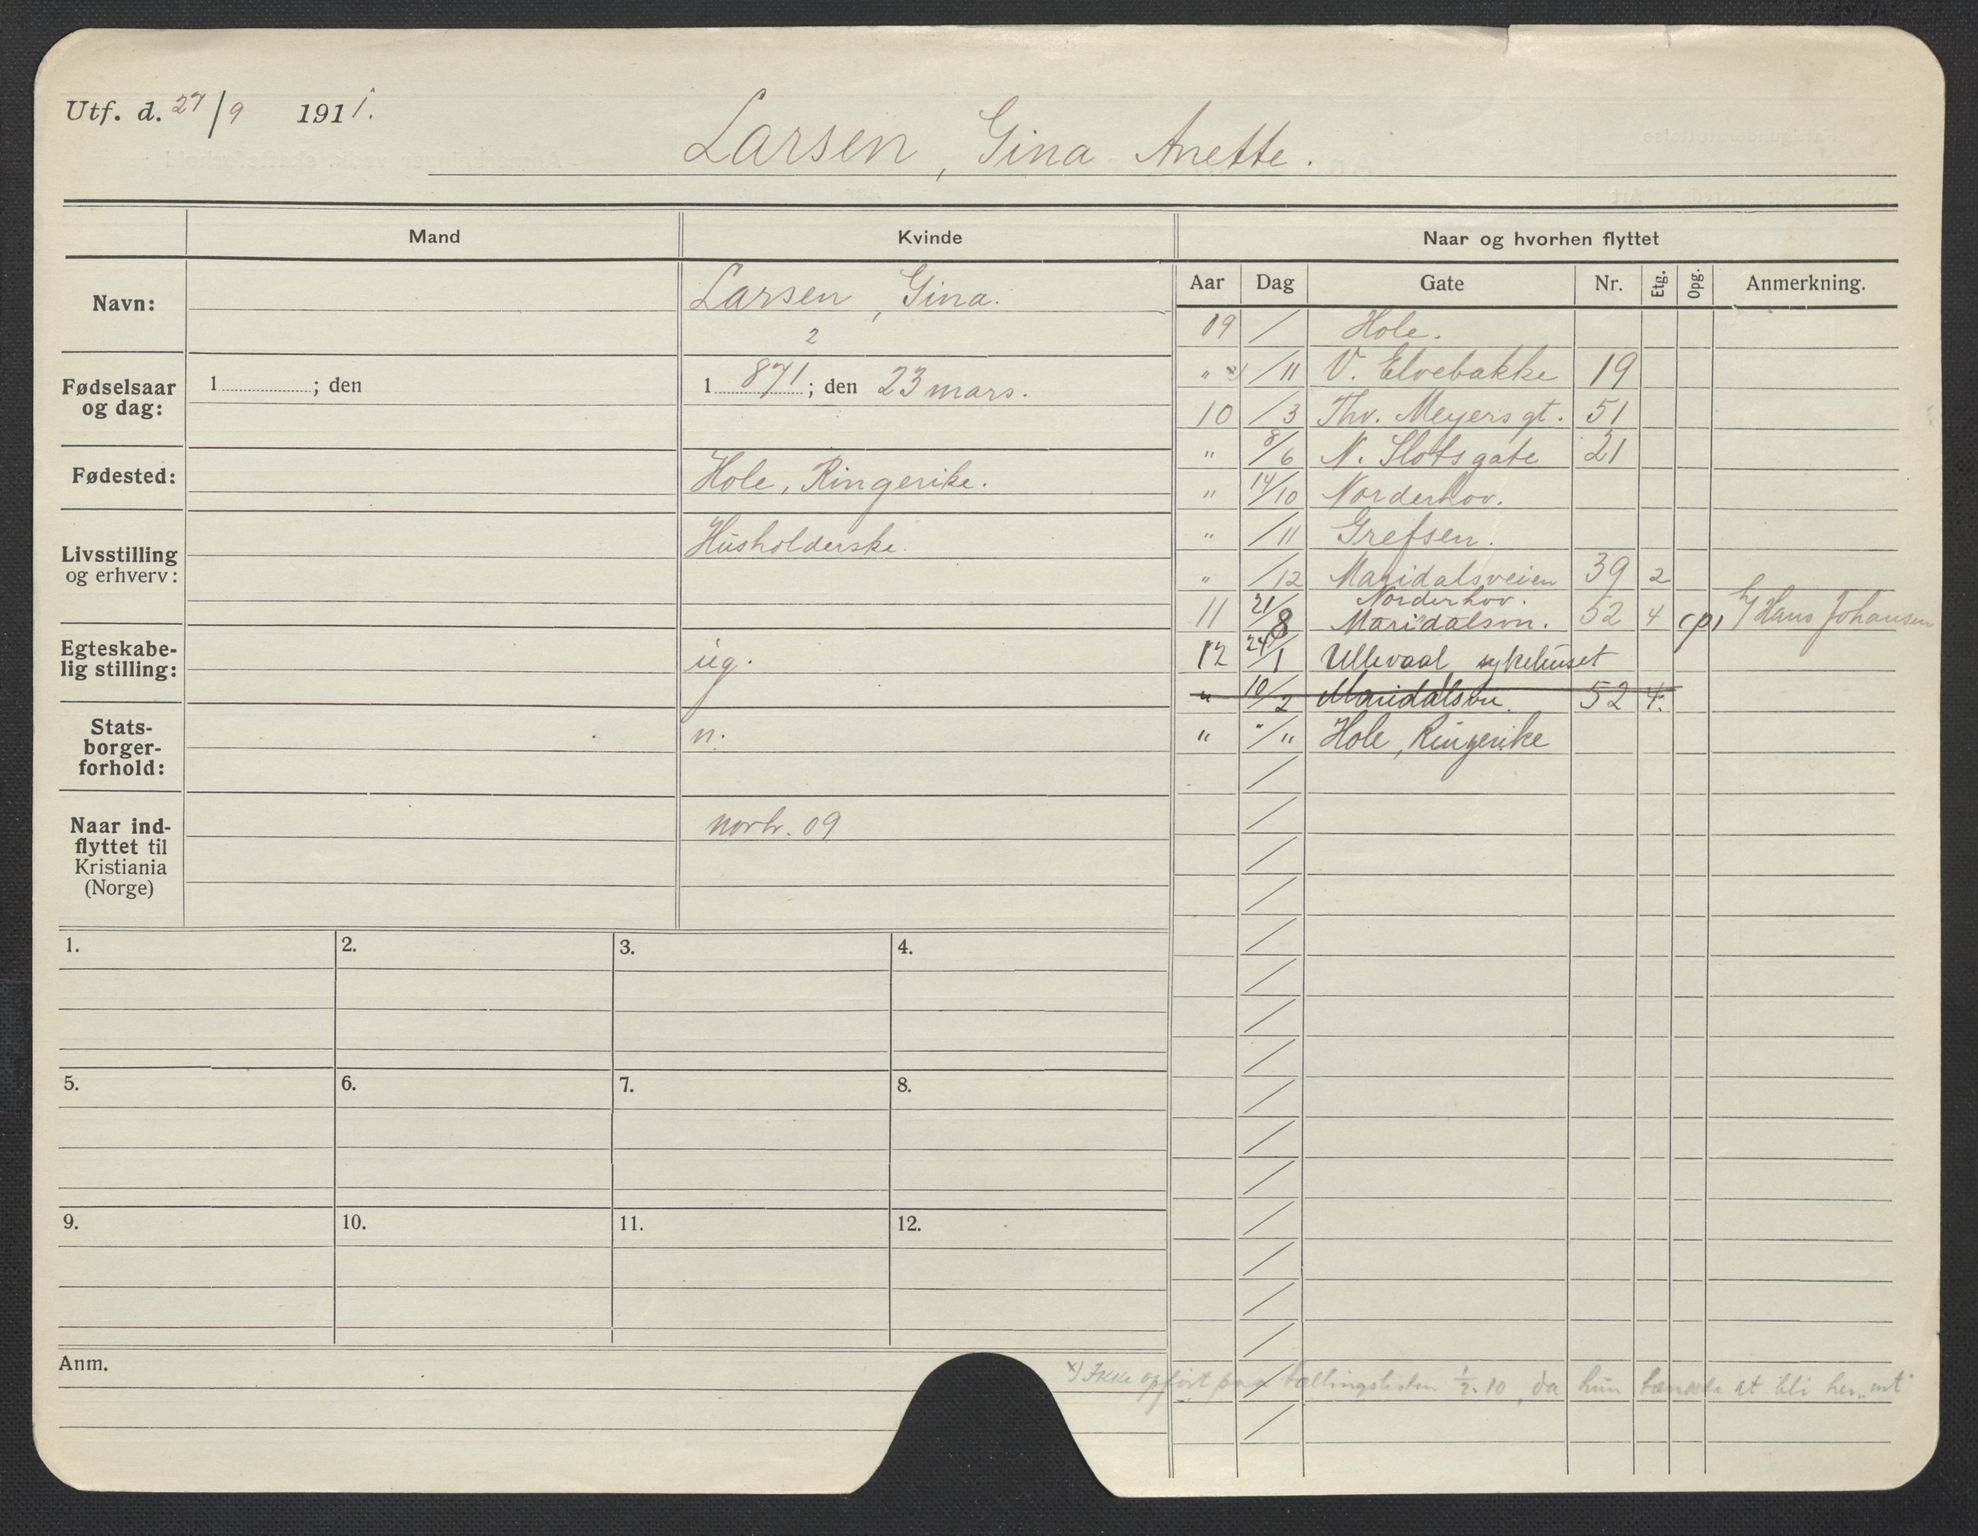 Utf. d. 27/9 1911.
Larsen, Gina Anette.
Mand
Kvinde
Naar og hvorhen flyttet
Aar Dag Gate Nr. Etg. Opg. Anmerkning.
Navn:
Larsen, Gina.
2
Fødselsaar
og dag:
1 ; den
1 871 ; den 23 mars.
Fødested:
Hole, Ringerike.
Livsstilling
og erhverv:
Husholderske.
Egteskabe-
lig stilling:
ug.
Stats-
borger-
forhold:
n.
Naar ind-
flyttet til
Kristiania
(Norge)
novbr. 09
09 / Hole.
" x) /11 V. Elvebakke 19
10 /3 Thv. Meyersgt. 51
" 8/6 N. Slotsgate 21
" 14/10 Norderhov.
" /11 Grefsen.
" /12 Maridalsveien 39 2
Norderhov.
11 21/8 Maridalsvn. 52 4 (p) h/ Hans Johansen
12 24/1 Ullevaal sykehuset
" 10/2 Maridalsvn. 52 4.
" "/" Hole, Ringerike
1. 2. 3. 4.
5. 6. 7. 8.
9. 10. 11. 12.
Anm.
x) Ikke opført paa tællingslisten 1/2-10, da hun tænkte at bli